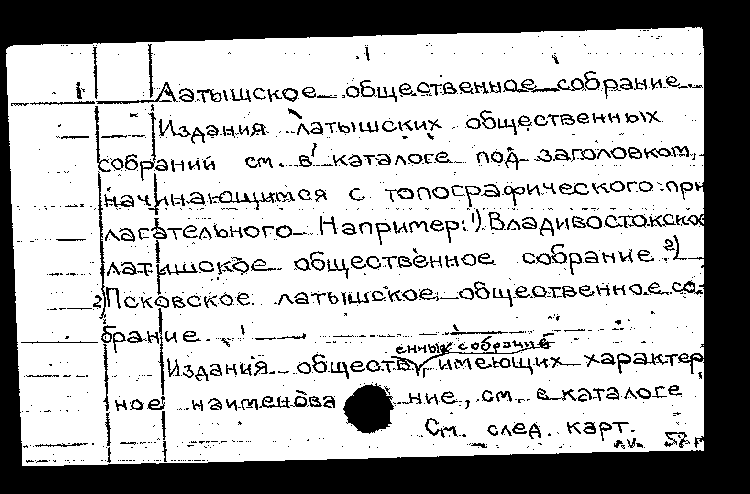 Латышское общественное собрание.
Издания латышских общественных
собраний см. в каталоге под заголовком,
начинающимся с топографического при
лагательного Например: 1) Владивостокское
латышское общественное собрание 2)
2) Псковское латышское общественное со-
брание
енных собраний
Издания обществ, имеющих характер
ное наименова ние, см. в каталоге
См. след. карт.